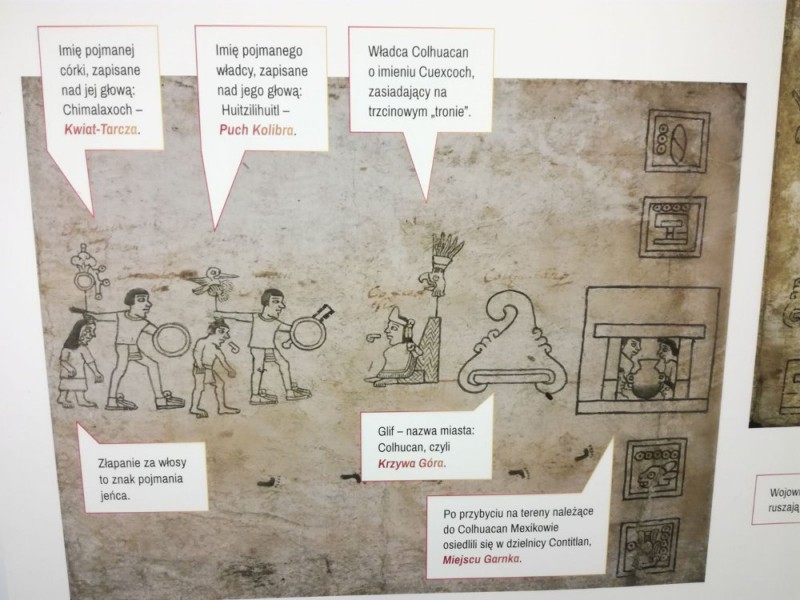 Imię pojmanej
córki, zapisane
nad jej głową:
Chimalaxoch –
Kwiat-Tarcza.
Imię pojmanego
władcy, zapisane
nad jego głową:
Huitzilihuitl –
Puch Kolibra.
Władca Colhuacan
o imieniu Cuexcoch,
zasiadający na
trzcinowym „tronie”.
Złapanie za włosy
to znak pojmania
jeńca.
Glif – nazwa miasta:
Colhucan, czyli
Krzywa Góra.
Po przybyciu na tereny należące
do Colhuacan Mexikowie
osiedlili się w dzielnicy Contitlan,
Miejscu Garnka.
ruszają